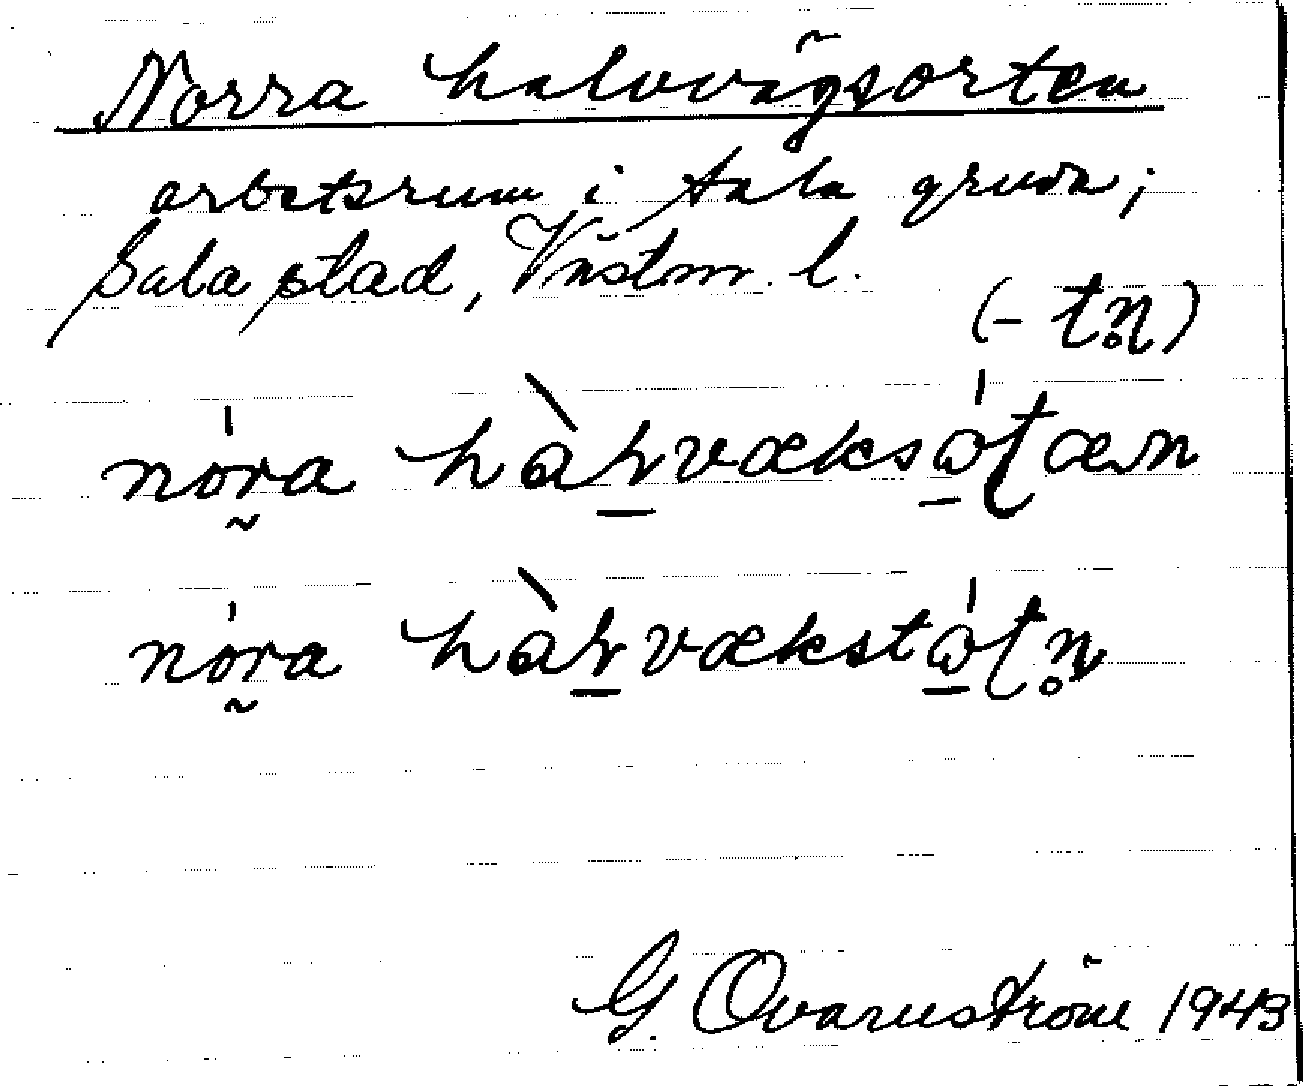 Norra halvvägsorten
arbetsrum i Sala gruva;
Sala stad, Västm. l.
(– tn̥)
nó̰ra hàl̠væksǻ̠ʈæn
nó̰ra hàl̠vækstǻ̠ʈn̥
G. Qvarnström 1943